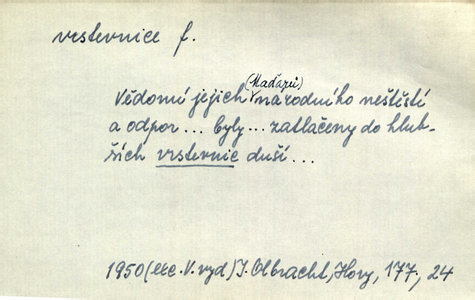 vrstevnice f.
(Maďarů)
Vědomí jejich národního neštěstí
a odpor... byly... zatlačeny do hlub-
ších vrstevnic duší...
1950 (exc. V. vyd) I. Olbracht, Hory, 177, 24